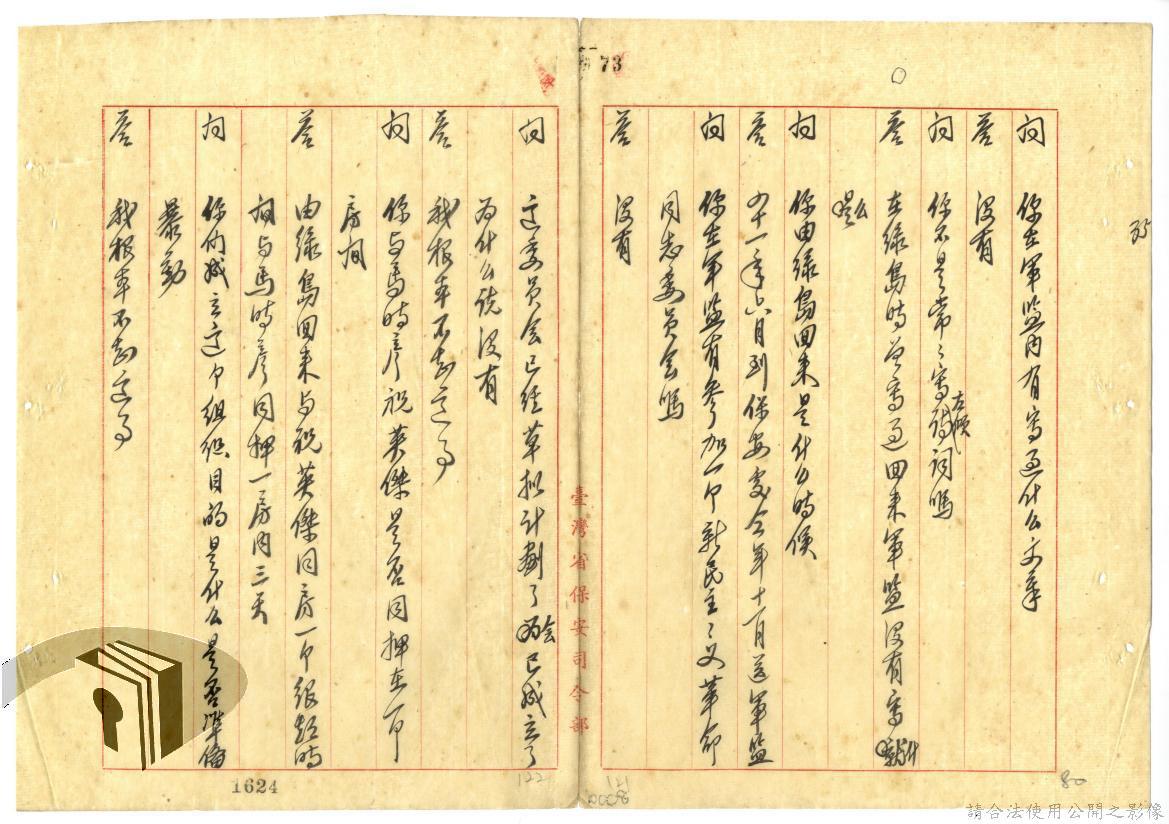 73
35
問 你在軍監內有寫過什么文章
答 沒有
問 你不是常々寫詩詞嗎
左傾
答 在綠島時曾寫過回來軍監沒有寫
么
問 你由綠島回來是什么時候
答 四十一年六月到保安處今年十一月送軍監
問 你在軍監有參加一个新民主々义革命
同志委員会嗎
答 沒有
臺灣省保安司令部
問 这委員会已經草拟計劃了会已成立了
为什么說沒有
答 我根本不知这事
問 你与馬時彥祝英傑是否同押在一个
房间
答 由綠島回來与祝英傑同房一个很短時
间与馬時彥同押一房间三天
問 你们成立这个組織目的是什么是否準备
暴動
答 我根本不知这事
1624
122
121
80
請合法使用公開之影像